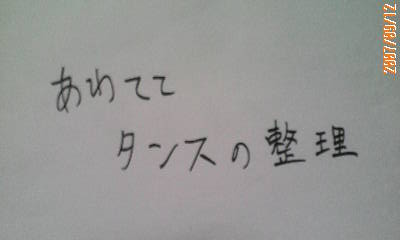 あわてて
タンスの整理
2007/09/12